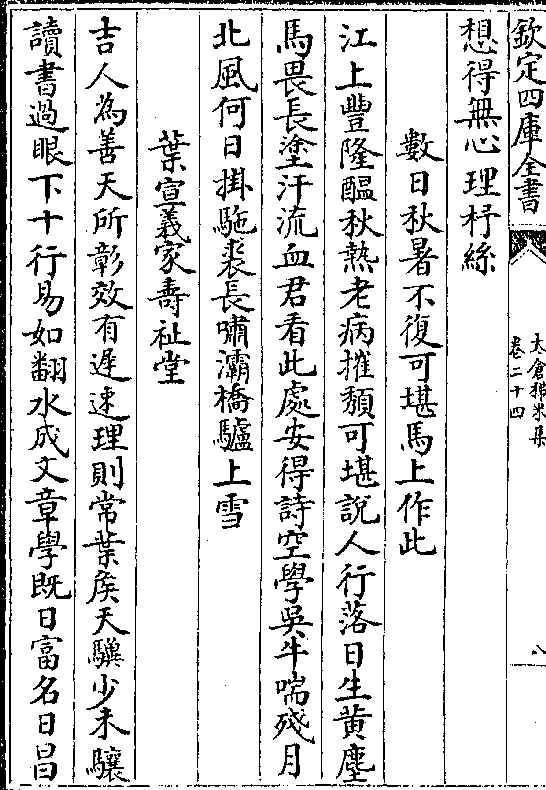 欽定四庫全書
太倉稊米集
卷二十四
八
想得無心理杼絲
數日秋暑不復可堪馬上作此
江上豐隆醖秋熱老病摧頽可堪說人行落日生黄塵
馬畏長塗汗流血君看此處安得詩空學吳牛喘殘月
北風何日掛駞裘長嘯灞橋驢上雪
葉宣義家壽祉堂
吉人為善天所彰效有遲速理則常葉侯天驥少未驤
讀書過眼下十行易如翻水成文章學既日富名日昌